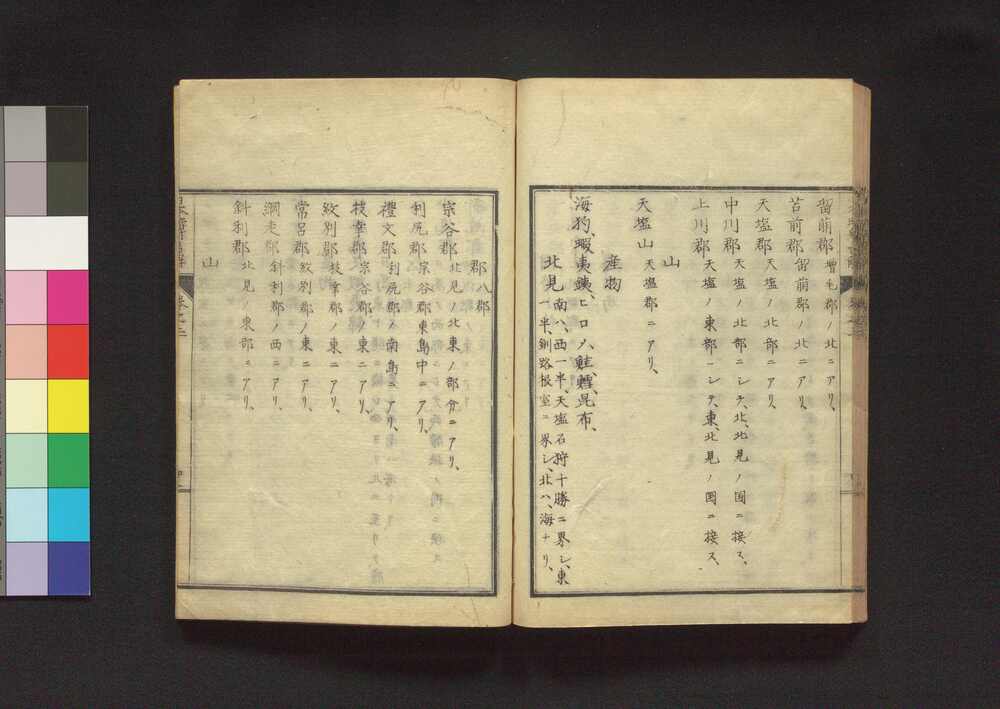 留萠郡 増毛郡ノ北ニアリ、
苫前郡 留萠郡ノ北ニアリ、
天塩郡 天塩ノ北部ニアリ、
中川郡 天塩ノ北部ニシテ、北、北見ノ国ニ接ス、
上川郡 天塩ノ東部ニシテ、東、北見ノ国ニ接ス、
山
天塩山 天塩郡ニアリ、
産物
海狗、蝦夷錦、ヒロハ、鮭、鱈、昆布、
北見 南ハ、西一半、天塩石狩十勝ニ界シ、東
一半、釧路根室ニ界シ、北ハ、海ナリ、
郡八郡
宗谷郡 北見ノ北東ノ部分ニアリ、
利尻郡 宗谷郡東島中ニアリ、
禮文郡 利尻郡ノ南島ニアリ、
枝幸郡 宗谷郡ノ東ニアリ、
紋別郡 枝幸郡ノ東ニアリ、
常呂郡 紋別郡ノ東ニアリ、
網走郡 斜利郡ノ西ニアリ、
斜利郡 北見ノ東部ニアリ、
山
巻之二